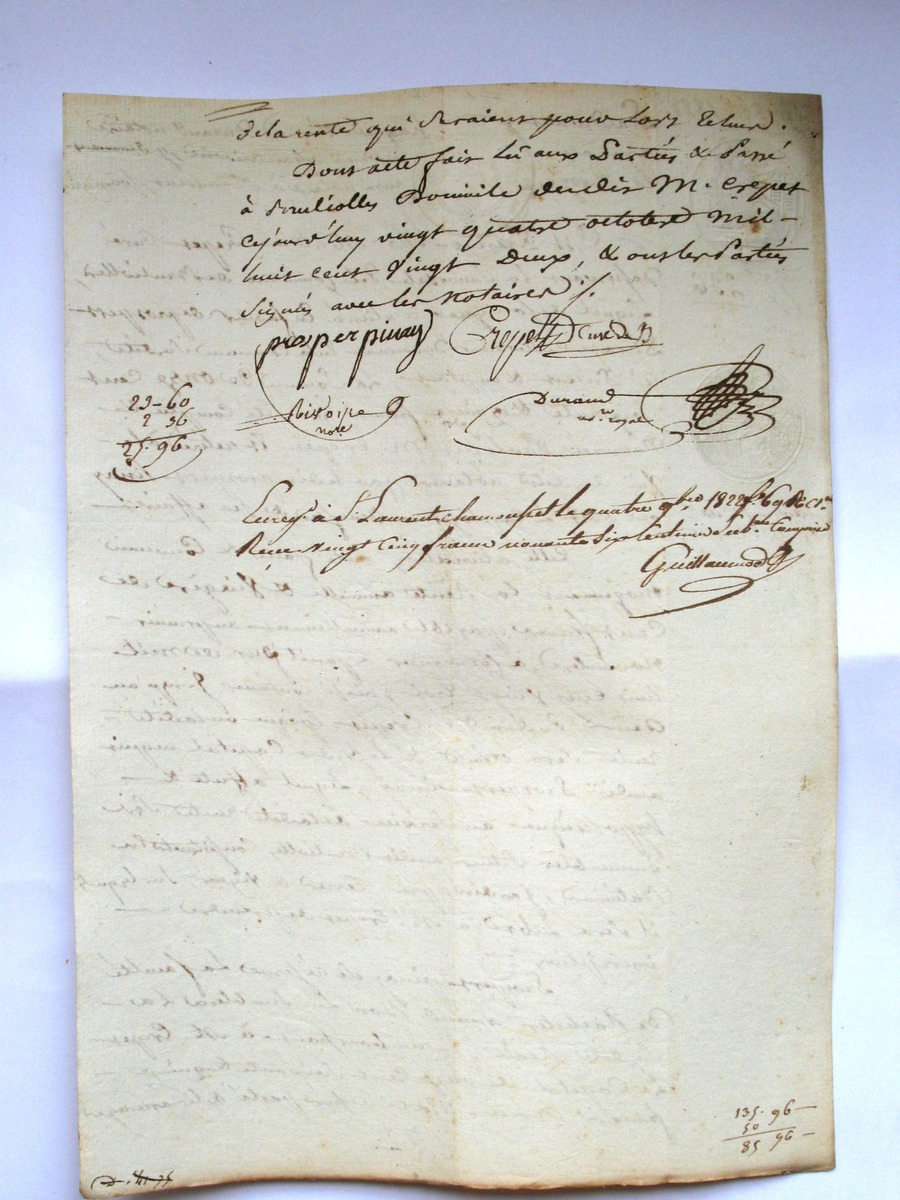 de la rente qui seraient pour lors echus.
Dont acte fait lû aux Parties & Passé
à Domicile dudit M. Crepet
cejourd'huy vingt quatre octobre mil
huit cent vingt deux, & ont les Parties
signés avec les notaires ./.
prosper pinay Crepet Curé
23-60
2 36
25.96
notre
Durand
no.re royal
Enreg. à St. Laurent chamousset le quatre 9bre 1822 fo 69
Reçu vingt cinq francs nonante six centimes sub.on comprise
Guillaumod
135.96
50
85 96